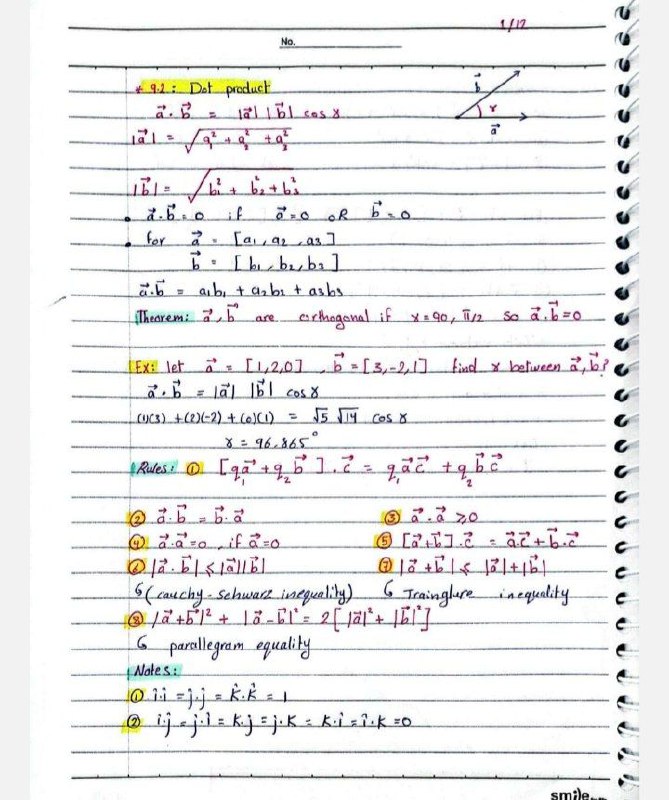 1/12
No.
* 9.2: Dot product
a⃗ . b⃗ = |a⃗| |b⃗| cos γ
b⃗
γ
a⃗
|a⃗| = √(a₁² + a₂² + a₃²)
|b⃗| = √(b₁² + b₂² + b₃²)
• a⃗.b⃗ = 0 if a⃗ = 0 OR b⃗ = 0
• for a⃗ = [a₁, a₂, a₃]
b⃗ = [b₁, b₂, b₃]
a⃗.b⃗ = a₁b₁ + a₂b₂ + a₃b₃
Theorem: a⃗, b⃗ are orthogonal if γ = 90, π/2 so a⃗.b⃗ = 0
Ex: let a⃗ = [1,2,0], b⃗ = [3,-2,1] find γ between a⃗, b⃗?
a⃗ . b⃗ = |a⃗| |b⃗| cos γ
(1)(3) + (2)(-2) + (0)(1) = √5 √14 cos γ
γ = 96.865°
Rules: ① [q₁a⃗ + q₂b⃗] . c⃗ = q₁a⃗c⃗ + q₂b⃗c⃗
② a⃗.b⃗ = b⃗.a⃗ ③ a⃗.a⃗ ≥ 0
④ a⃗.a⃗ = 0, if a⃗ = 0 ⑤ [a⃗+b⃗].c⃗ = a⃗.c⃗ + b⃗.c⃗
⑥ |a⃗.b⃗| ≤ |a⃗||b⃗| ⑦ |a⃗+b⃗| ≤ |a⃗|+|b⃗|
↳ (cauchy-schwarz inequality) ↳ Trainglure inequality
⑧ |a⃗+b⃗|² + |a⃗-b⃗|² = 2[|a⃗|² + |b⃗|²]
↳ parallegram equality
Notes:
① î.î = ĵ.ĵ = k̂.k̂ = 1
② î.ĵ = ĵ.î = k.ĵ = ĵ.k = k.î = î.k = 0
smile